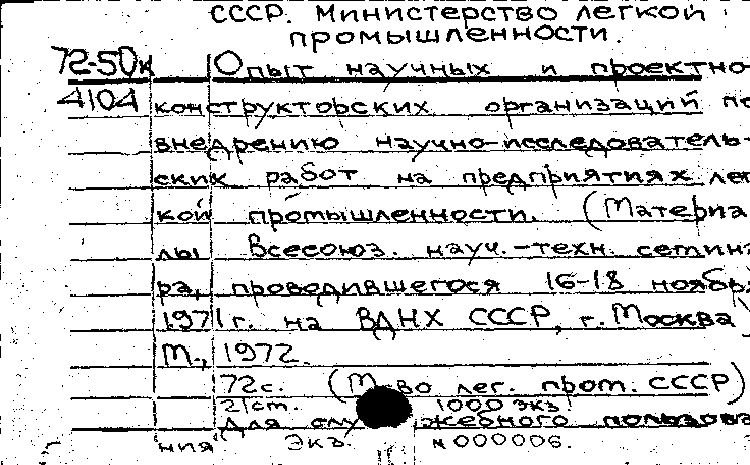 СССР. Министерство легкой
промышленности.
72-50к Опыт научных и проектно-
4104 конструкторских организаций по
внедрению научно-исследователь-
ских работ на предприятиях лег
кой промышленности. (Материа
лы Всесоюз. науч.-техн. семина
ра, проводившегося 16-18 ноябр
1971г. на ВДНХ СССР, г. Москва)
М., 1972.
72с. (М-во лег. пром. СССР)
21см. 1000 экз.
Для служебного пользова
ния Экз. № 000006.